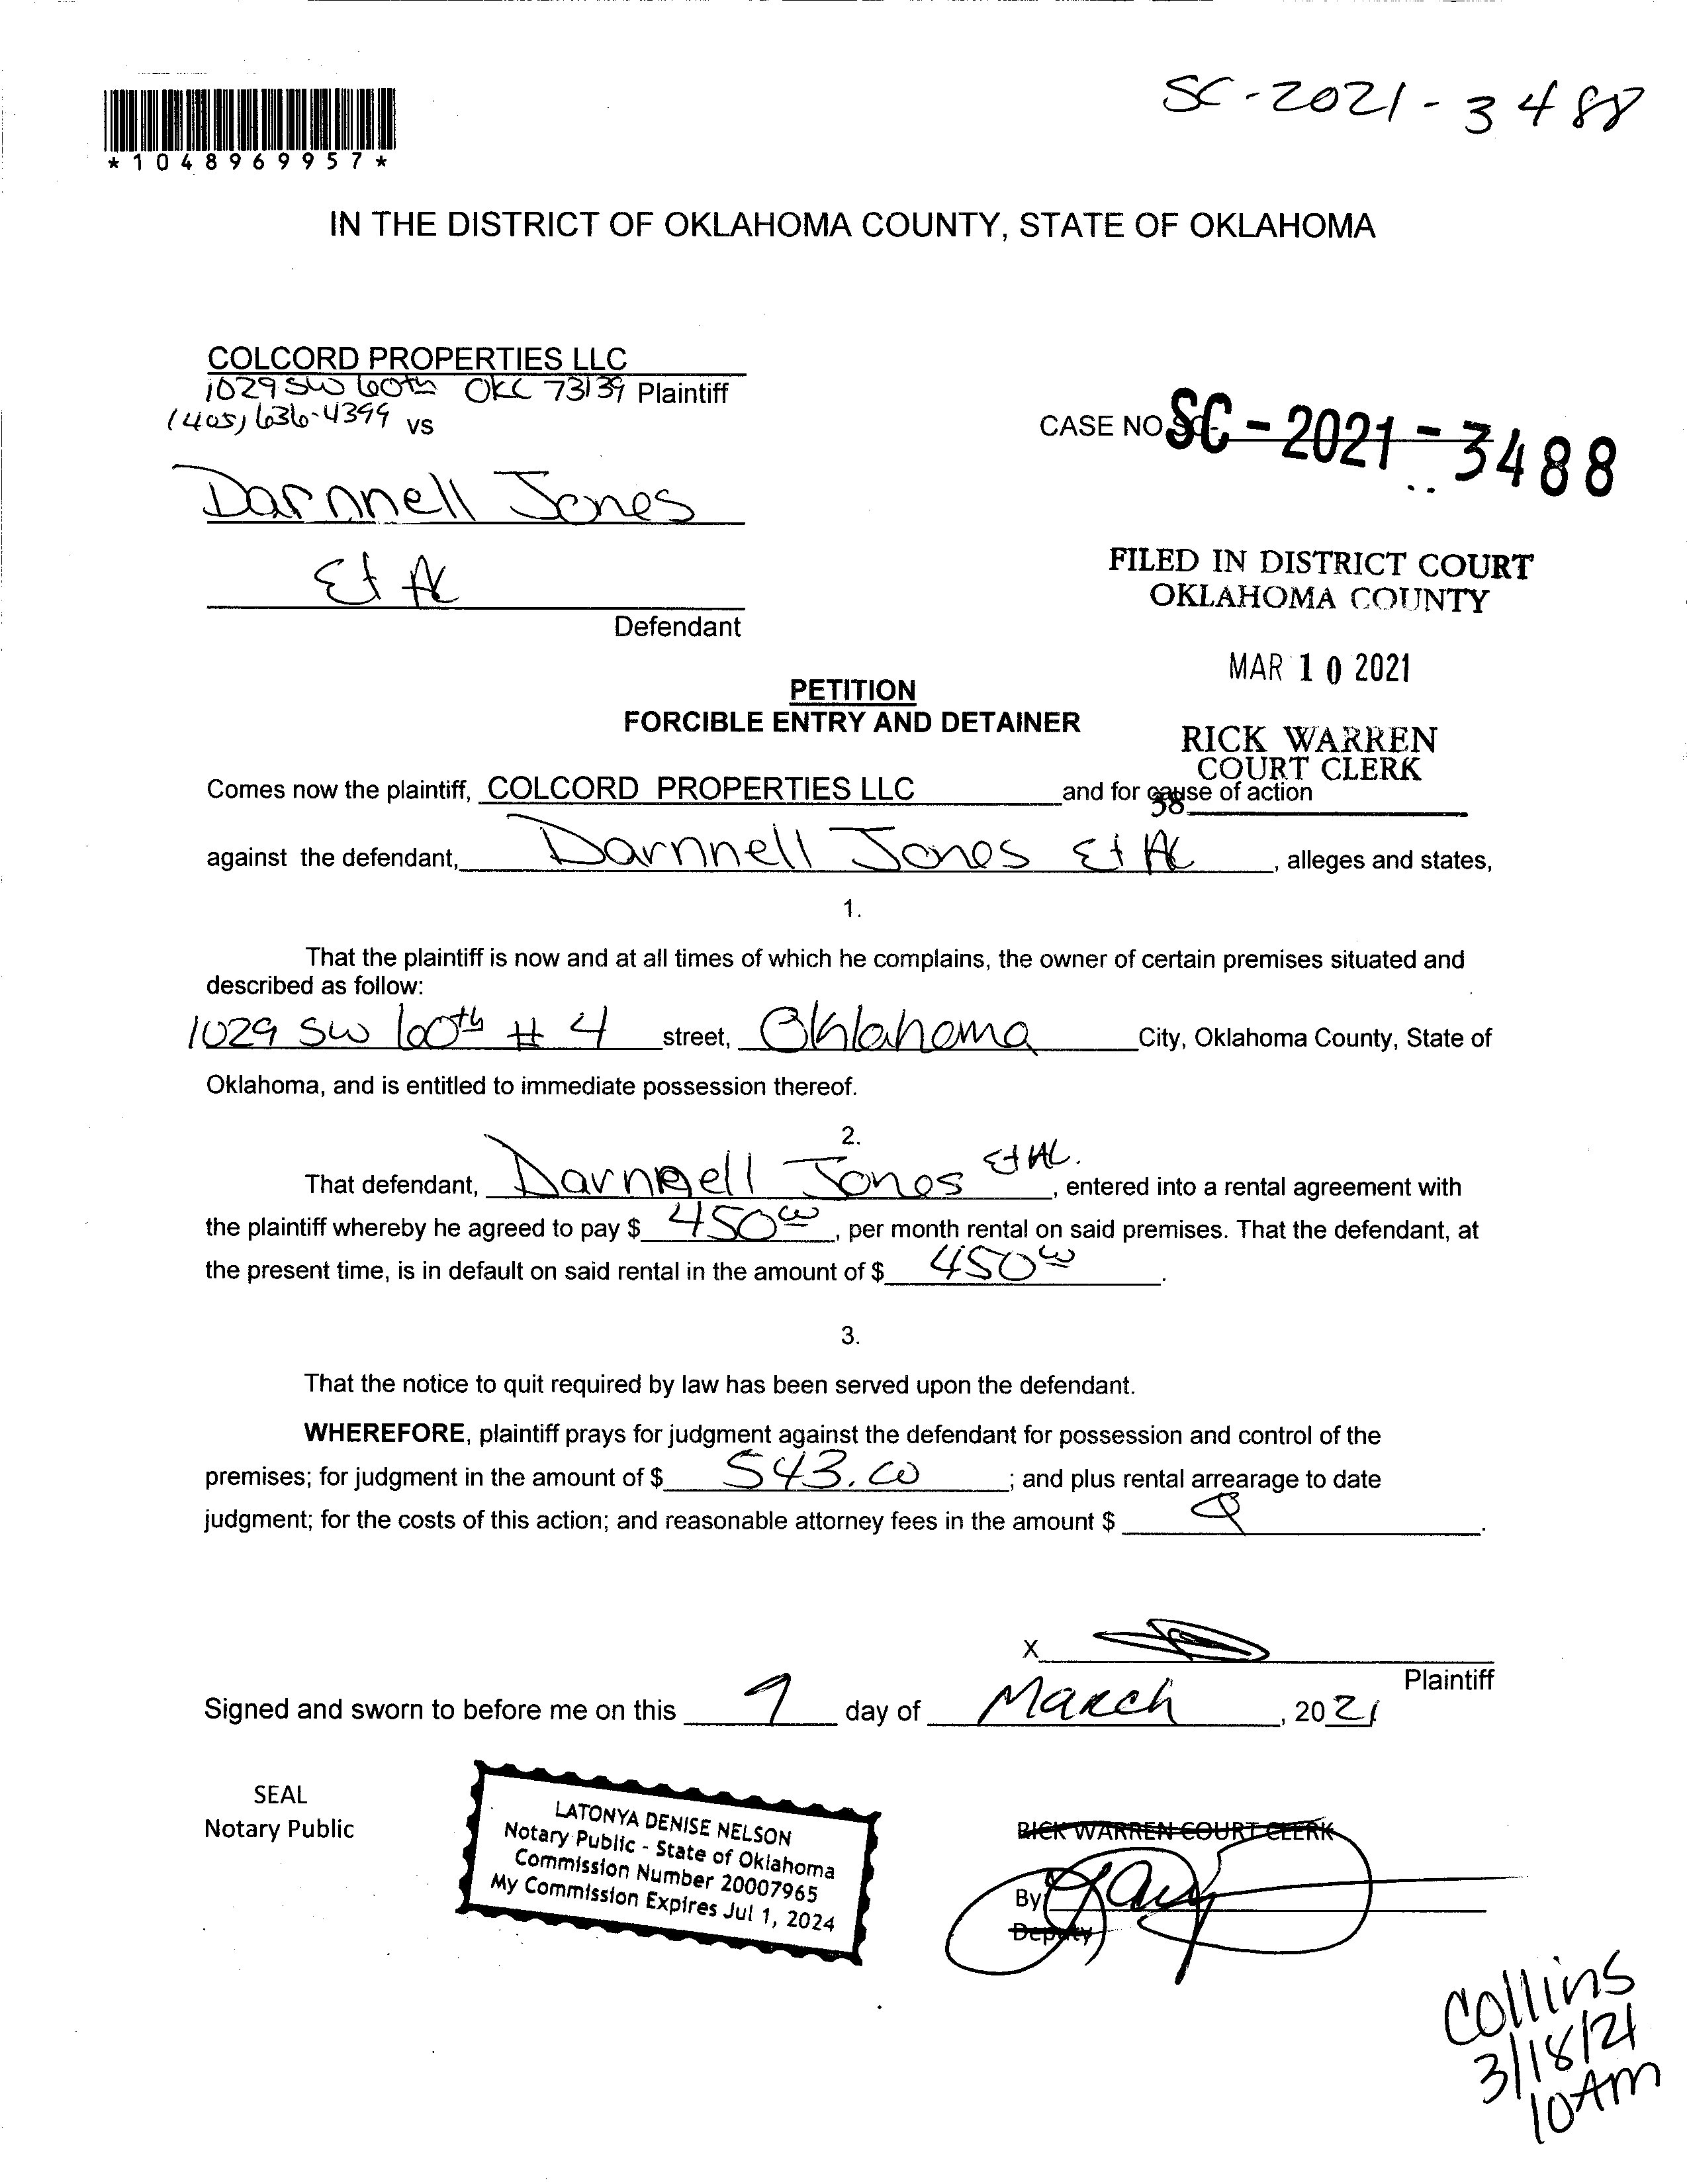 SC-2021-3488
*1048969957*
IN THE DISTRICT OF OKLAHOMA COUNTY, STATE OF OKLAHOMA
COLCORD PROPERTIES LLC
1029 SW 60th OKC 73139 Plaintiff
(405) 636-4399 vs
CASE NO SC-2021-3488
Darnnell Jones
Et Al
Defendant
FILED IN DISTRICT COURT
OKLAHOMA COUNTY
MAR 10 2021
PETITION
FORCIBLE ENTRY AND DETAINER
RICK WARREN
COURT CLERK
38
Comes now the plaintiff, COLCORD PROPERTIES LLC and for cause of action
against the defendant, Darnnell Jones Et Al, alleges and states,
1.
That the plaintiff is now and at all times of which he complains, the owner of certain premises situated and
described as follow:
1029 SW 60th # 4 street, Oklahoma City, Oklahoma County, State of
Oklahoma, and is entitled to immediate possession thereof.
2.
That defendant, Darnnell Jones Et Al., entered into a rental agreement with
the plaintiff whereby he agreed to pay $ 450 00, per month rental on said premises. That the defendant, at
the present time, is in default on said rental in the amount of $ 450 00.
3.
That the notice to quit required by law has been served upon the defendant.
WHEREFORE, plaintiff prays for judgment against the defendant for possession and control of the
premises; for judgment in the amount of $ 543.00; and plus rental arrearage to date
judgment; for the costs of this action; and reasonable attorney fees in the amount $
X
Plaintiff
Signed and sworn to before me on this 9 day of March, 2021
SEAL
Notary Public
LATONYA DENISE NELSON
Notary Public - State of Oklahoma
Commission Number 20007965
My Commission Expires Jul 1, 2024
RICK WARREN COURT CLERK
By
Deputy
Collins
3/18/21
10 AM